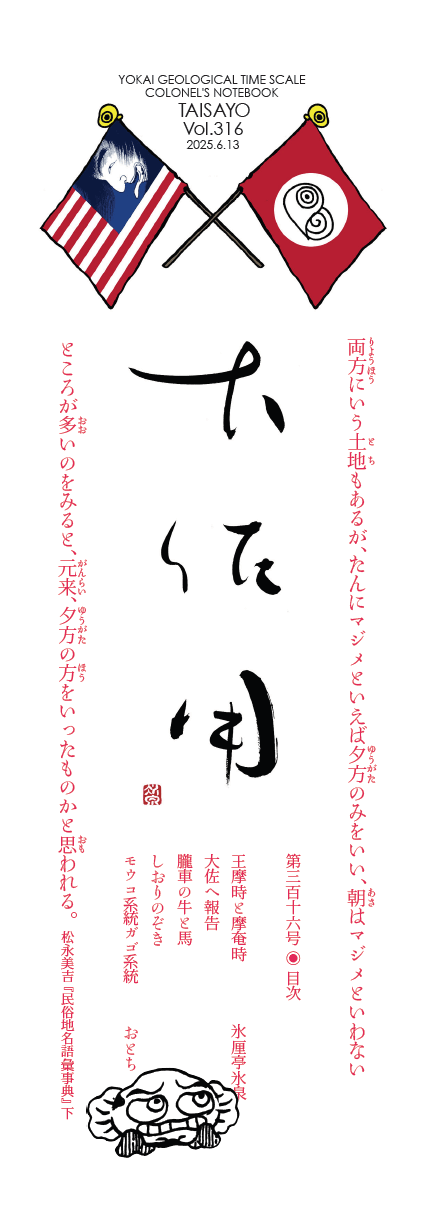 YOKAI GEOLOGICAL TIME SCALE
COLONEL'S NOTEBOOK
TAISAYO
Vol.316
2025.6.13
両方にいう土地もあるが、たんにマジメといえば夕方のみをいい、朝はマジメといわない
ところが多いのをみると、元来、夕方の方をいったものかと思われる。 松永美吉『民俗地名語彙事典』下
大佐用
第三百十六号◉目次
王摩時と摩奄時 氷厘亭氷泉
大佐へ報告
朧車の牛と馬
しおりのぞき
モウコ系統ガゴ系統 おとち